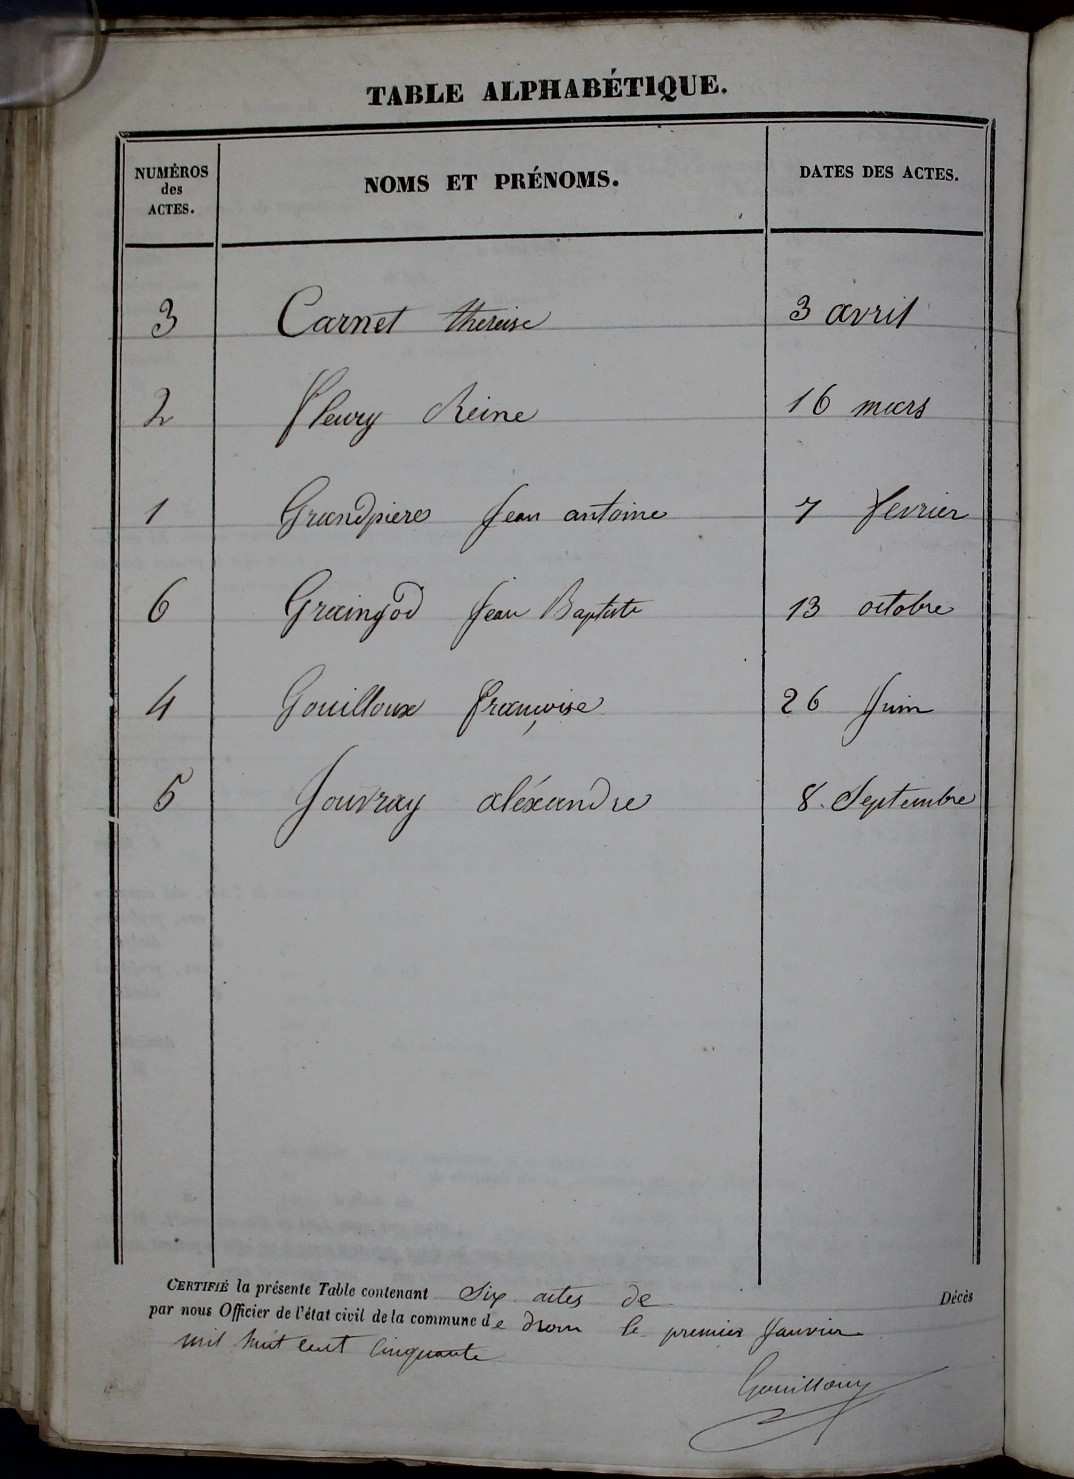 TABLE ALPHABÉTIQUE.
NUMÉROS des ACTES. NOMS ET PRÉNOMS. DATES DES ACTES.
3 Carnet therèise 3 avril
2 fleury Reine 16 mars
1 Grandpiere Jean antoine 7 fevrier
6 Graingod Jean Baptiste 13 octobre
4 Gouilloux françoise 26 Juin
5 Jouvray aléxandre 8. Septembre
CERTIFIÉ la présente Table contenant Six actes de Décès
par nous Officier de l'état civil de la commune de drom le premier Janvier
mil huit cent cinquante
Gouilloux